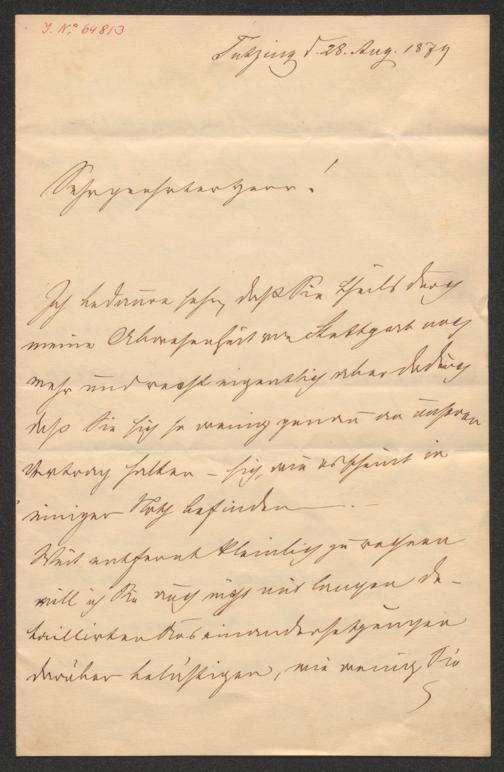 J. N.º 64813
Tutzing d. 28. Aug. 1879
Sehr geehrter Herr!
Ich bedaure sehr, daß Sie theils durch
meine Abwesenheit von Stuttgart noch
mehr und recht eigentlich aber dadurch
daß Sie sich so wenig genau an unseren
Vertrag halten – sich, wie es scheint in
einiger Noth befinden.–
Weit entfernt kleinlich zu rechnen
will ich Sie auch nicht mit langen de-
taillirten Auseinandersetzungen
darüber belästigen, wie wenig Sie